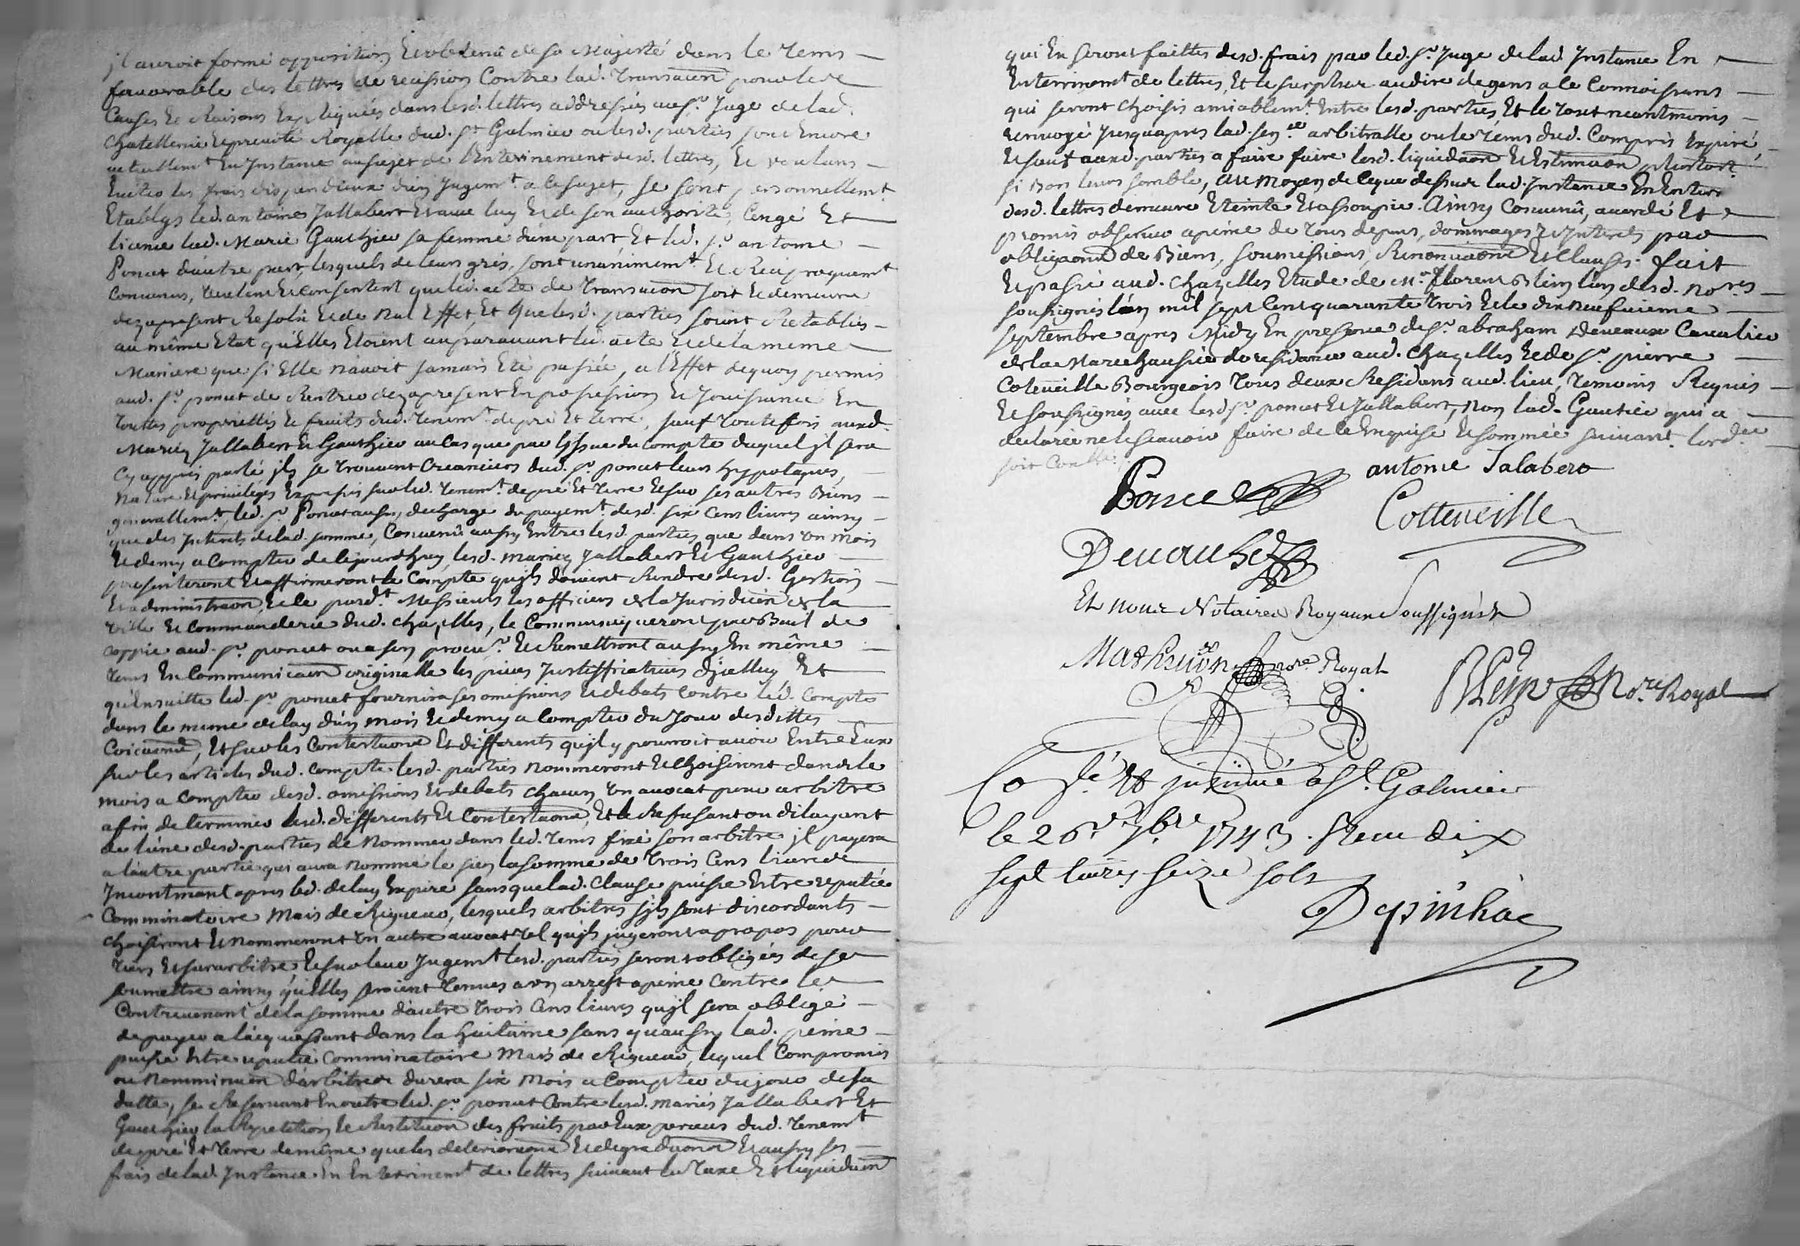 jl auroit formé opposition Et obtenû de sa Majesté dans le tems
favorable des lettres de recission Contre lad. Transaction pour les
Causes Et Raisons Expliquées dans lesd. lettres addressées au Sr. Juge de lad.
Chatellenie Royalle dud. St Galmier ou lesd. parties sont Encore
actuellemt En Jnstance au sujet de l'Enterinement desd. lettres, Et voulans
Eviter les frais dispendieux d'un Jugemt. a ce sujet, se sont personnellemt
Etablys led. antoine Jallabert Et avec luy Et de son authorité, Congé Et
licence lad. Marie Gauthier sa femme d'une part Et led. Sr. antoine
Poncet d'autre part, lesquels de leurs grés, sont unanimemt. Et Reciproquemt
Convenus, veulent Et consentent que led. acte de Transaction soit Et demeure
dez apresent Resolû Et de Nul Effet Et que lesd. parties soint Retablies
au même Etat qu'Elles Etoient auparavant led. acte Et de la meme
Maniere que si Elle n'avoit jamais Eté passée, a l'Effet de quoy permis
aud. Sr. poncet de Rentrer dez apresent En possession Et Jouissance En
Toutte propriettés Et fruits dud. Tenemt. de pré Et terre, sauf toutefois auxd.
Mariez Jallabert Et Gauthier au Cas que par l'Jssue du compte duquel jl sera
Cy apprés parlé jls se trouvent Creanciers dud. Sr. poncet leurs hypoteques,
Nature Et privileges Exprés sur led. Tenemt. de pré Et terre Et sur ses autres Biens
generallemt., led. Sr. Poncet aussy dechargé du payemt. desd. six Cens livres ainsy
que des Jnterets de lad. somme, Convenû aussy Entre lesd. parties que dans Un Mois
Et demy a Compter de cejourd'huy lesd. mariez Jallabert Et Gauthier
presenteront Et affirmeront le Compte qu'jls doivent Rendre desd. Gestion
Et administraon, Et ce pardt. Messieurs les officiers de la Jurisdicion de la
Ville Et Commanderie dud. Chazelles, le Communiqueront par Bail de
coppie aud. Sr. poncet ou a son procur. Et Remettront aussy En même
tems En Communicaon originalle les pieces Justifficatives d'jcelluy Et
qu'Ensuitte led. Sr. poncet fournira ses omissions Et debats Contre led. Compte
dans le meme delay d'un mois Et demy a Compter du Jour desdittes
Et sur les Contestaons Et differents qu'jl y pourroit avoir Entre Eux
sur les articles dud. Compte lesd. parties Nommeront Et Choisiront dans le
mois a compter desd. omissions Et debats chacun Un avocat pour arbitre
afin de terminer lesd. differents Et Contestaons, Et le Refusant ou dilayant
de l'une desd. parties de Nommer dans led. Tems fixé son arbitre jl payera
a l'autre partie qui aura nommé le sien la somme de trois Cens livres
Jncontinant apres led. delay Expiré sans que lad. Clause puisse Etre reputée
Comminatoire Mais de Rigueur, lesquels arbitres s'jls sont discordants
choisiront Et nommeront Un autre avocat tel qu'jls jugeront apropos pour
tiers Et surarbitre Et sur leur Jugemt. lesd. parties seront obligées de se
soumettre ainsy qu'Elles seroient Tenues a un arrest a peine Contre le
Contrevenant de la somme d'autre trois Cens livres qu'jl sera obligé
de payer a l'acquiessant dans la huitaine sans qu'aussy lad. peine
puisse Etre reputée Comminatoire Mais de Rigueur, lequel Compromis
ou Nomminaon d'arbitres durera six Mois a Compter du jour de sa
datte, se Reservant En outre led. Sr. poncet Contre lesd. mariés Jallabert Et
Gauthier la Repetition Et Restituon des fruits par Eux perceus dud. Tenemt
de pré Et terre de même que les deterioraons Et degradaons Et aussy les
frais de lad. Jnstance En Enterinemt. de lettres suivant la Taxe Et liquidaon
qui En seront faittes desd. frais par led. Sr. Juge de lad. Jnstance En
Enterinemt. de lettres, Et le surplus au dire de gens a ce Connoissans
qui seront choisis amiablemt. Entre lesd. parties, Et le tout neantmoins
renvoyé Jusqu'apres lad. sence. arbitralle ou le tems dud. Compris Expiré
Et sauf auxd. parties a faire faire lesd. liquidaon Et Estimaon plustost
si Bon leur semble, au moyen de ce que dessus lad. Jnstance En Enter
desd. lettres demeure Eteinte Et assoupie. Ainsy Convenû, accordé Et
promis observer a peine de tous depens, dommages Et Jnterets par
obligaons de Biens, soumissions, Renonciaons Et Clauses. fait
Et passé aud. Chazelles Etude de Me. florent Blein l'un desd. Nores
soussignés l'an mil sept Cent quarante trois Et le dix Neufvieme
septembre apres Midy En presence de Sr. abraham Deveaux Cavalier
de la Marechaussée de residance aud. Chazelles Et de Sr. pierre
Coteveille Bourgeois tous deux Residans aud. lieu, temoins Requis
Et soussignés avec lesd. Sr. poncet Et Jallabert, Non lad. Gautier qui a
declaré ne le sçavoir faire de ce Enquise Et sommée suivant l'ordce
soit Conllé.
Poncet
antoine Jalabert
Cotteveille
Devauhe
Et nous Notaires Royaux Soussignés
Mathevon nore Royal
Blein Nore. Royal
Co lé & jnsinué a St. Galmier
le 26e 7bre 1743. Receu dix
sept livres seize sols
Depinhac